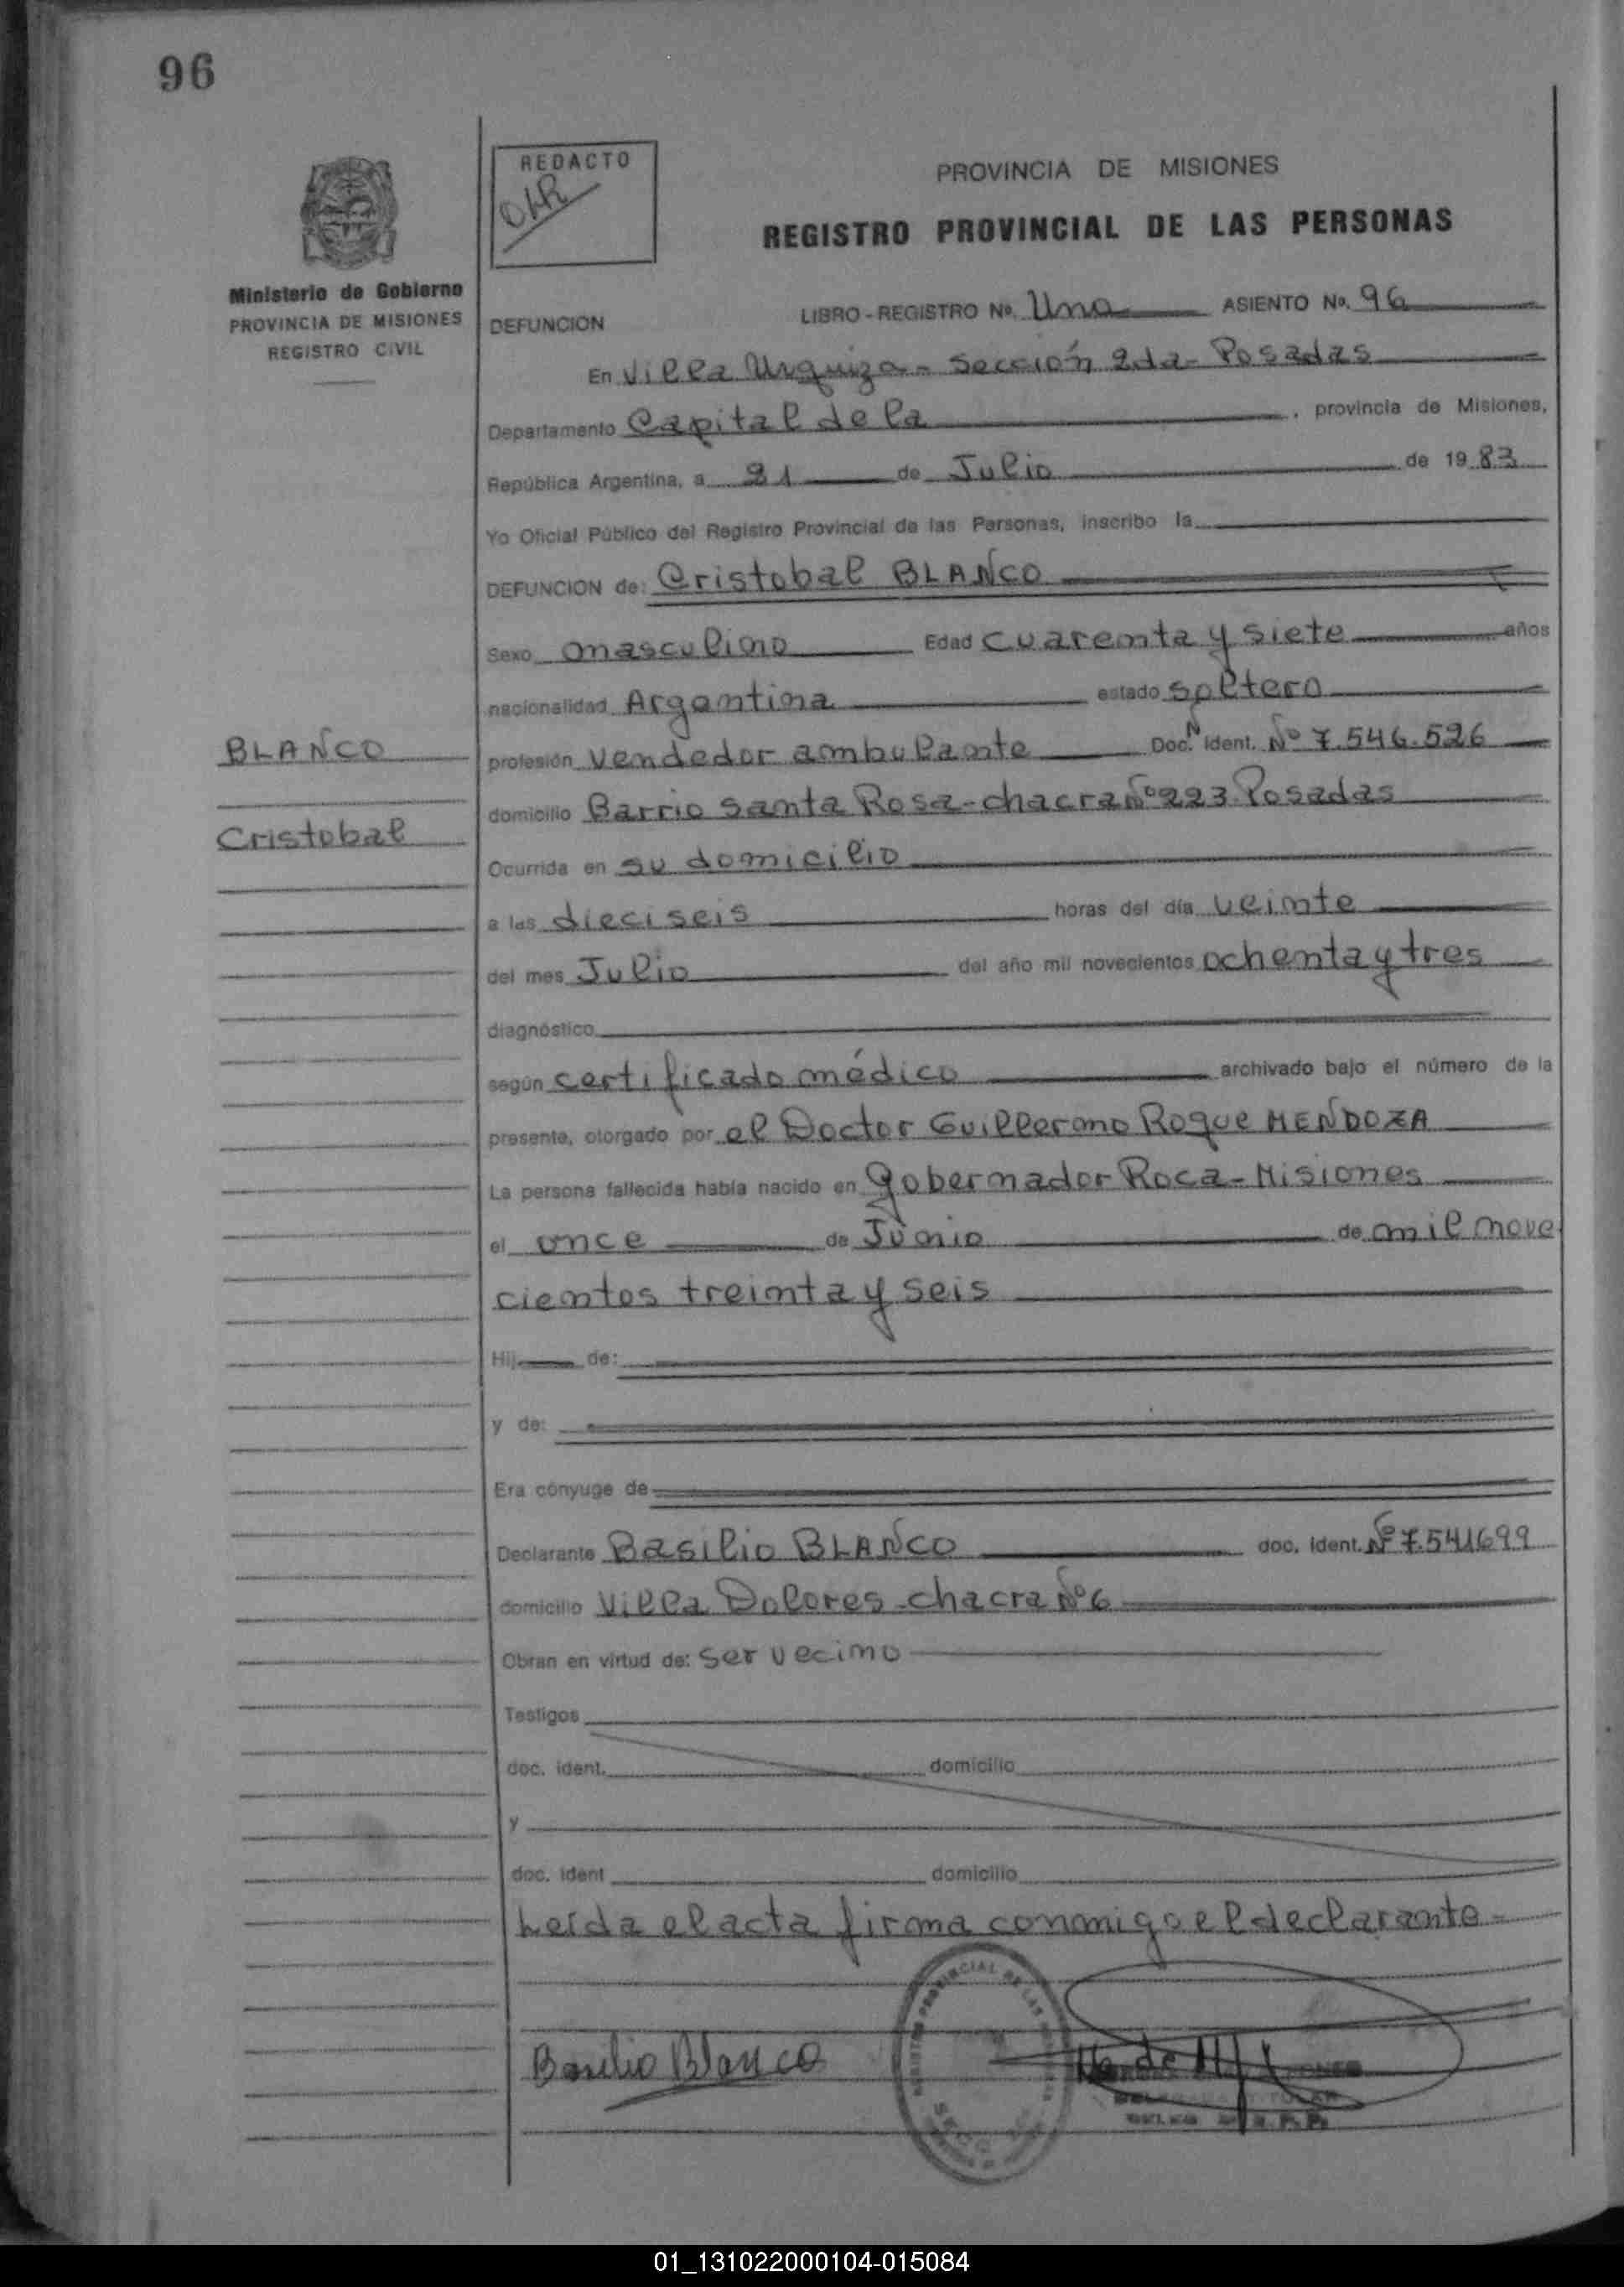 96
REDACTO
OLR
PROVINCIA DE MISIONES
REGISTRO PROVINCIAL DE LAS PERSONAS
Ministerio de Gobierno
PROVINCIA DE MISIONES
REGISTRO CIVIL
DEFUNCION
LIBRO - REGISTRO No. Uno ASIENTO No. 96
En Villa Urquiza - Sección 2da - Posadas
Departamento Capital de la , provincia de Misiones,
República Argentina, a 21 de Julio de 19 83
Yo Oficial Público del Registro Provincial de las Personas, inscribo la
DEFUNCION de: Cristobal BLANCO
Sexo masculino Edad cuarenta y siete años
nacionalidad Argentina estado soltero
BLANCO
profesión vendedor ambulante Doc. N Ident. Nº 7.546.526
domicilio Barrio Santa Rosa - chacra Nº 223 Posadas
Cristobal
Ocurrida en su domicilio
a las dieciseis horas del día veinte
del mes Julio del año mil novecientos ochenta y tres
diagnóstico
según certificado médico archivado bajo el número de la
presente, otorgado por el Doctor Guillermo Roque MENDOZA
La persona fallecida había nacido en Gobernador Roca - Misiones
el once de Junio de mil nove
cientos treinta y seis
Hij de:
y de:
Era cónyuge de
Declarante Basilio BLANCO doc. Ident. Nº 7.541699
domicilio Villa Dolores - chacra Nº 6
Obran en virtud de: ser vecino
Testigos
doc. ident. domicilio
y
doc. ident domicilio
Leída el acta firma conmigo el declarante -
Basilio Blanco
01_131022000104-015084